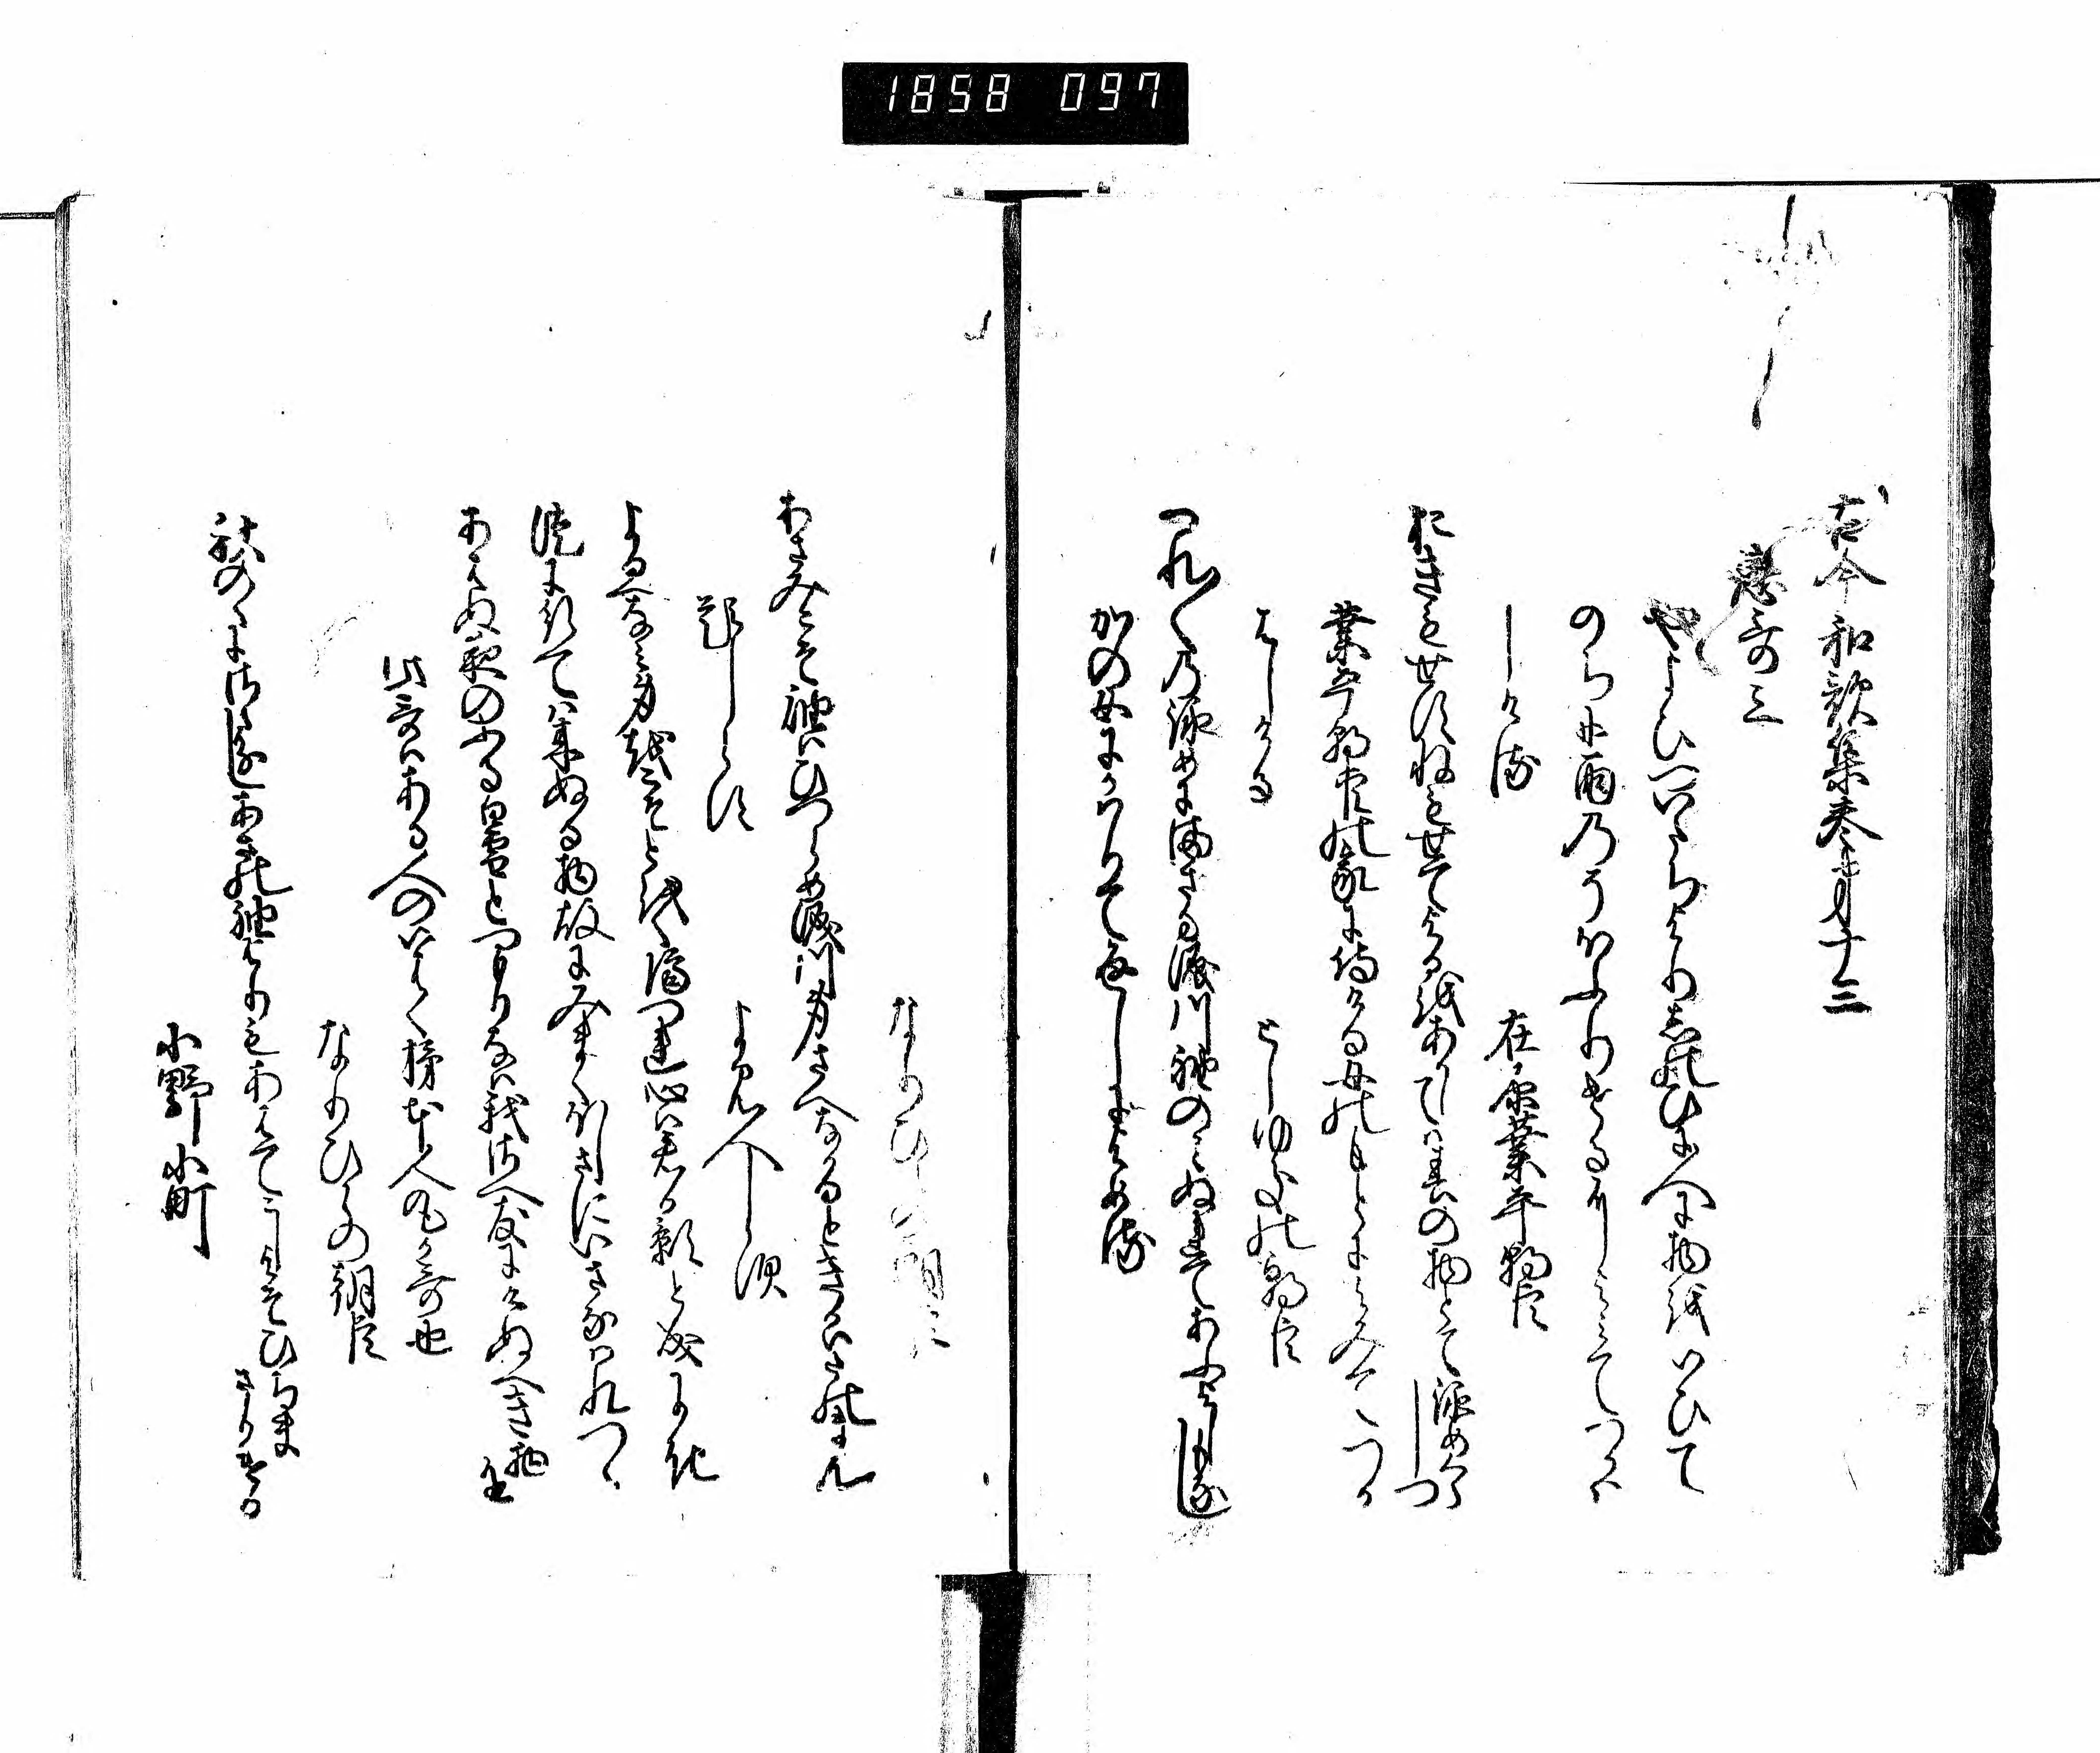 1858 097
古今和歌集巻第十三
恋哥三
やよひのついたちよりしのひに人に物をいひて
のちに雨のそほふりけるによみてつかは
しける
在原業平朝臣
おきもせすねもせてよるをあかしては春の物とて詠めくらしつ
業平朝臣の家に侍ける女のもとによみてつか
はしける
としゆきの朝臣
つれ〱の詠めにまさる涙川袖のみぬれてあふよしもなし
かの女にかはりて返しによめる
なりひらの朝臣
あさみこそ袖はひつらめ涙川身さへなかるときかはたのまん
題しらす
よみ人しらす
よるへなみ身をこそとをく隔つれ心は君か影と成にき
徒に行ては来ぬる物故にみまくほしさにいさなはれつゝ
あはぬ夜のふる白雪とつもりなは我さへ友にけぬへき物を
此哥はある人のいはく柿本人丸か哥也
なりひらの朝臣
秋のゝにさゝ分しあさの袖よりもあはてこしよそひちまさりける
小野小町